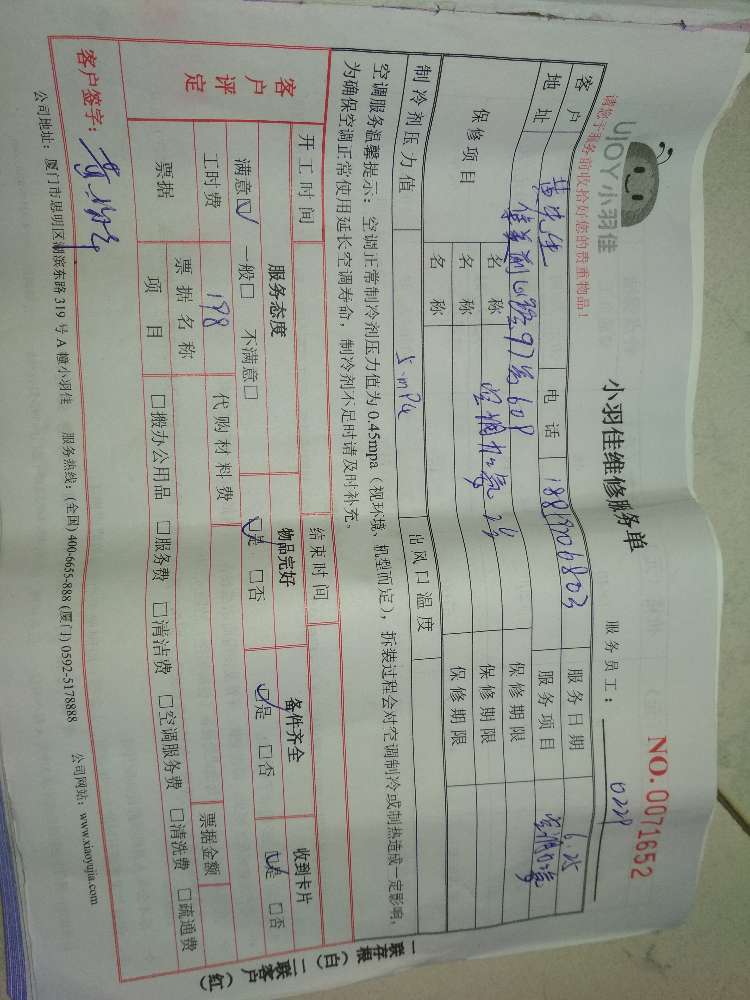 UJOY小羽佳
请您于服务前收拾好您的贵重物品!
小羽佳维修服务单
NO.0071652
服务员工:
客户 黄先生 电话 18819706803 服务日期 6.25
地址 集美 97号608 服务项目 空调加氨
保修项目 名称 空调加氨 保修期限
名称 保修期限
名称 保修期限
制冷剂压力值 5.mPa 出风口温度
空调服务温馨提示:空调正常制冷剂压力值为0.45mpa(视环境、机型而定),拆装过程会对空调制冷或制热造成一定影响,
为确保空调正常使用延长空调寿命,制冷剂不足时请及时补充。
开工时间 结束时间
客户评定 服务态度 物品完好 备件齐全 收到卡片
满意☑ 一般□ 不满意□ ☑是 □否 ☑是 □否 ☑是 □否
工时费 198 代购材料费
票据 票据名称 票据金额
项目 □搬办公用品 □服务费 □清洁费 □空调服务费 □清洗费 □疏通费
客户签字:
公司地址:厦门市思明区湖滨东路319号A幢小羽佳 服务热线:(全国)400-6655-888 (厦门)0592-5178888 公司网站:www.xiaoyujia.com
一联存根(白) 二联客户(红)